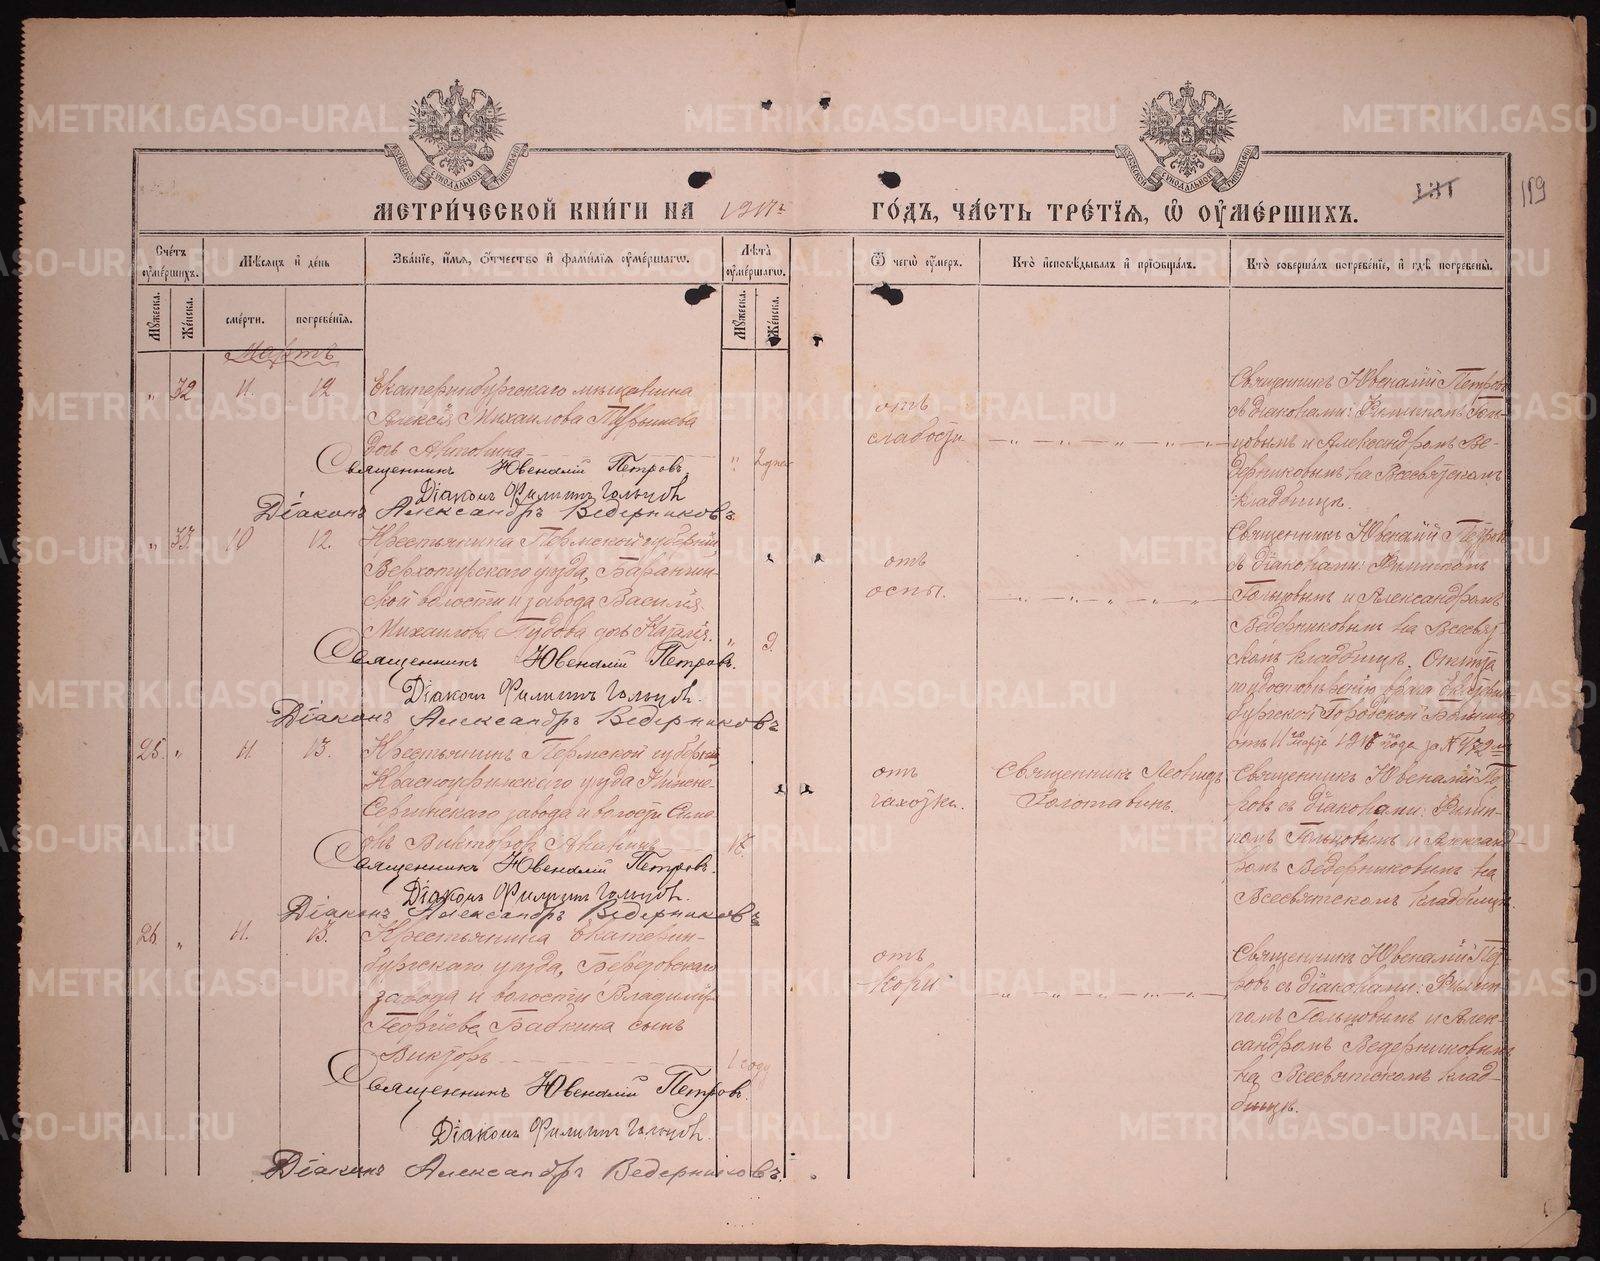 МЕТРИ́ЧЕСКОЙ КНИ́ГИ НА 1917 г. ГО́ДЪ, ЧА́СТЬ ТРЕ́ТЇѦ, Ѿ ОУ҆МЕ́РШИХЪ.
119
Сче́тъ оу҆ме́ршихъ.
Мѣ́сѧцъ и҆ де́нь
Зва́нїе, и҆́мѧ, ѻ҆́тчество и҆ фами́лїѧ оу҆ме́ршагѡ.
Лѣ́та оу҆ме́ршагѡ.
Ѿ чегѡ̀ оу҆́меръ.
Кто̀ и҆сповѣ́дывалъ и҆ прїѡбща́лъ.
Кто̀ соверша́лъ погребе́нїе, и҆ гдѣ̀ погребены̀.
Мꙋ́жеска.
Же́нска.
сме́рти.
погребе́нїѧ.
Мꙋ́жеска.
Же́нска.
Мартъ
" 32 11. 12. Екатеринбургскаго мѣщанина
Алексія Михаилова
дочь
" 2 дней
Священникъ Ювеналій Петровъ.
Діаконъ Филиппъ Гольцовъ
Діаконъ Александръ Ведерниковъ.
отъ
слабости
Священникъ Ювеналій Петровъ
съ діаконами: Филиппомъ Голь-
цовымъ и Александромъ Ве-
дерниковымъ на Всесвятскомъ
кладбищѣ.
" 33. 10 12. Крестьянина Пермской губерніи,
Верхотурскаго уѣзда, Баранчин-
ской волости и завода Василія
Михаилова дочь
" 9.
Священникъ Ювеналій Петровъ.
Діаконъ Филиппъ Гольцовъ.
Діаконъ Александръ Ведерниковъ
отъ
оспы.
Священникъ Ювеналій Петровъ
съ діаконами: Филиппомъ
Гольцовымъ и Александромъ
Ведерниковымъ на Всесвят-
скомъ кладбищѣ. Отпѣта
по удостовѣренію врача Екатерин-
бургской Городской Больницы
отъ 11 марта 1917 года за № 472 м
25. " 11. 13. Крестьянинъ Пермской губерніи
Красноуфимскаго уѣзда Нижне-
Сергинскаго завода и волости Симе-
онъ Викторовъ
17.
Священникъ Ювеналій Петровъ.
Діаконъ Филиппъ Гольцовъ.
Діаконъ Александръ Ведерниковъ
отъ
чахотки.
Священникъ Леонидъ
Золотавинъ.
Священникъ Ювеналій Пет-
ровъ съ діаконами: Филип-
помъ Гольцовымъ и Александ-
ромъ Ведерниковымъ на
Всесвятскомъ кладбищѣ.
26 " 11. 13. Крестьянина Екатерин-
бургскаго уѣзда,
завода и волости Владиміра
Георгіева Бабкина сынъ
Викторъ
1 году
Священникъ Ювеналій Петровъ.
Діаконъ Филиппъ Гольцовъ.
Діаконъ Александръ Ведерниковъ.
отъ
кори
Священникъ Ювеналій Пет-
ровъ съ діаконами: Филип-
помъ Гольцовымъ и Алек-
сандромъ Ведерниковымъ
на Всесвятскомъ клад-
бищѣ.
METRIKI.GASO-URAL.RU